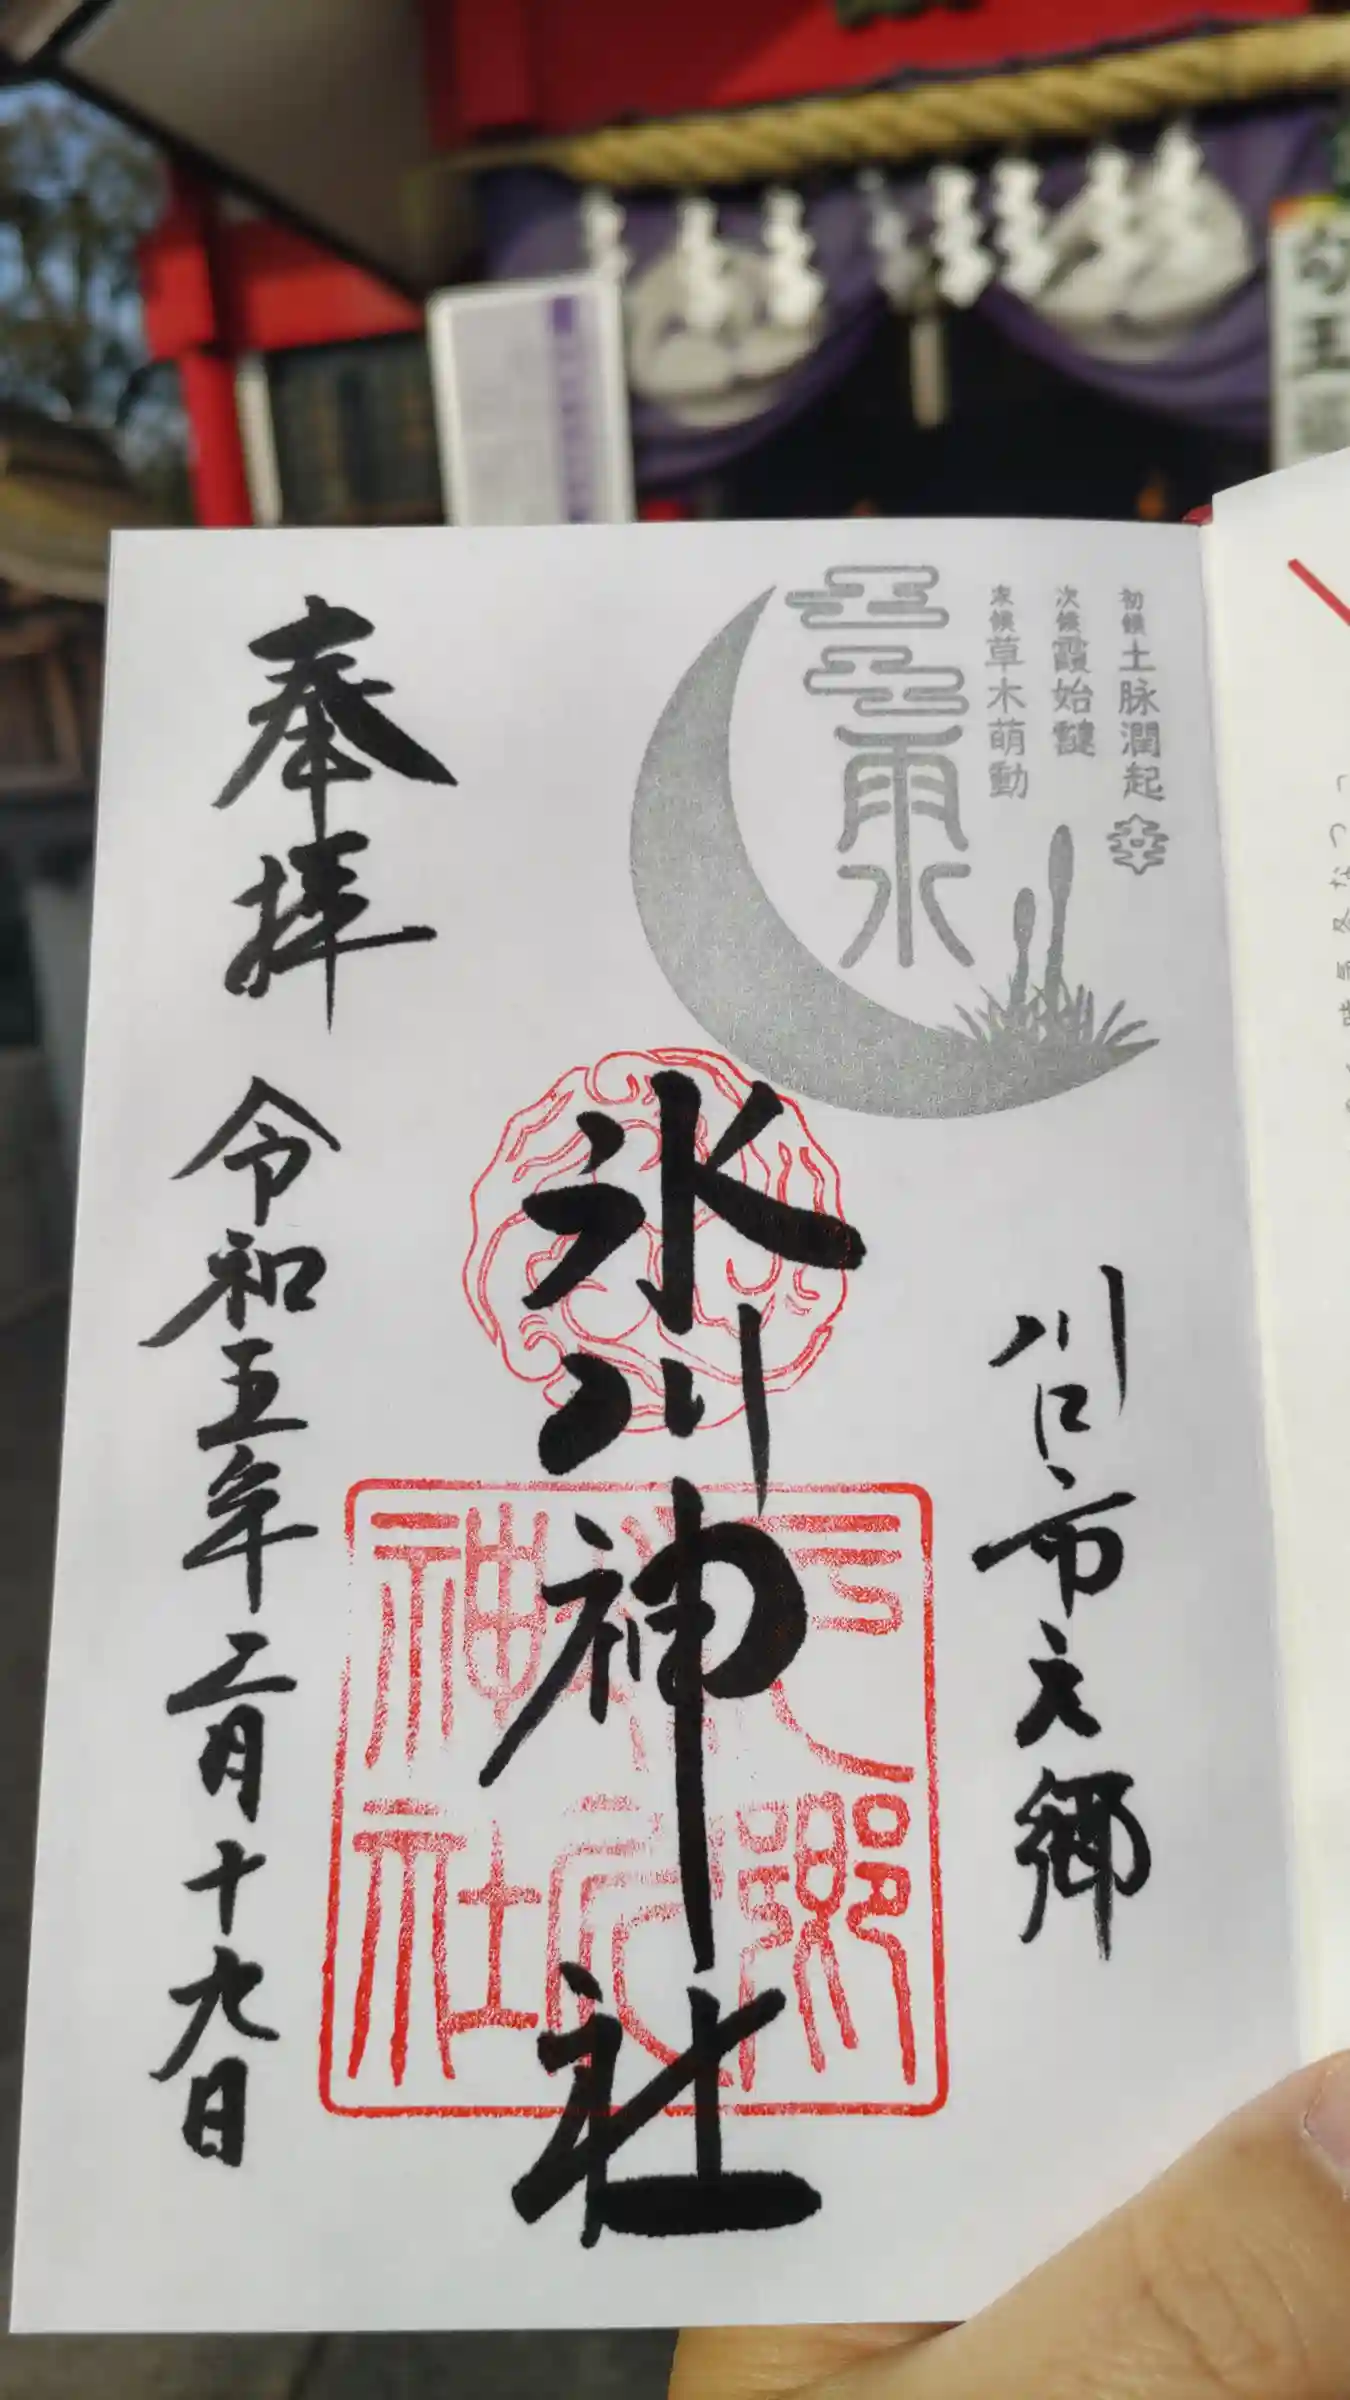 初候 土脉潤起
次候 霞始靆
末候 草木萌動
雨水
川口市元郷
氷川神社
元郷氷川神社
奉拝
令和五年二月十九日